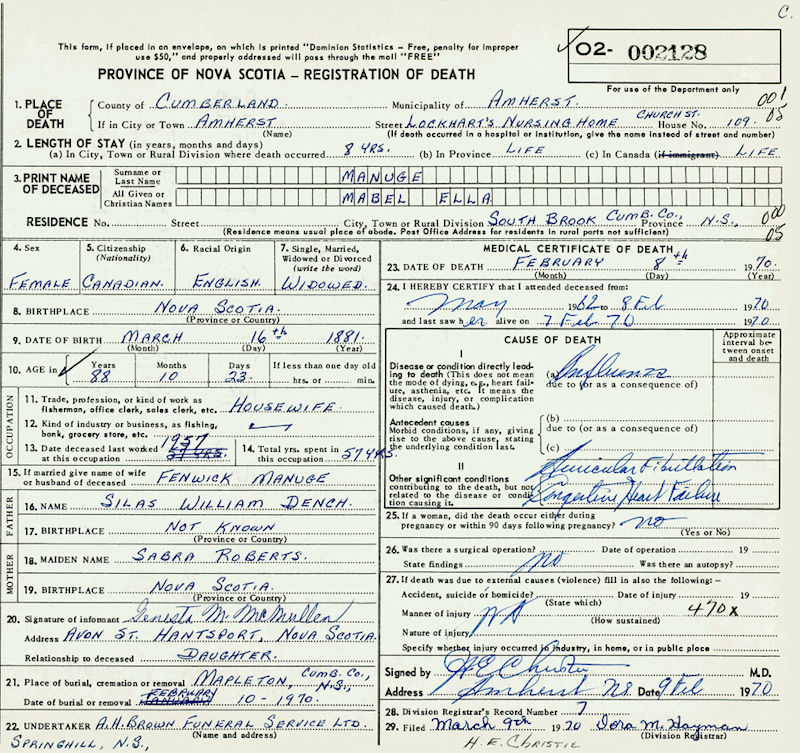 C.
This form, if placed in an envelope, on which is printed "Dominion Statistics – Free, penalty for improper
use $50," and properly addressed will pass through the mail "FREE"
PROVINCE OF NOVA SCOTIA – REGISTRATION OF DEATH
02- 002128
For use of the Department only
1. PLACE OF DEATH County of CUMBERLAND. Municipality of AMHERST. 001
If in City or Town AMHERST Street LOCKHART'S NURSING HOME CHURCH ST. House No. 109. 05
(Name) (If death occurred in a hospital or institution, give the name instead of street and number)
2. LENGTH OF STAY (in years, months and days)
(a) In City, Town or Rural Division where death occurred 8 YRS. (b) In Province LIFE (c) In Canada (if immigrant) LIFE
3. PRINT NAME OF DECEASED
Surname or Last Name MANUGE
All Given or Christian Names MABEL ELLA
RESIDENCE No. Street City, Town or Rural Division SOUTH BROOK CUMB. CO., Province N.S., 000
(Residence means usual place of abode. Post Office Address for residents in rural parts not sufficient) 05
4. Sex 5. Citizenship (Nationality) 6. Racial Origin 7. Single, Married, Widowed or Divorced (write the word)
FEMALE CANADIAN. ENGLISH. WIDOWED.
8. BIRTHPLACE NOVA SCOTIA.
(Province or Country)
9. DATE OF BIRTH MARCH 16th 1881.
(Month) (Day) (Year)
10. AGE in Years Months Days If less than one day old
88 10 23 hrs. or min.
OCCUPATION
11. Trade, profession, or kind of work as
fisherman, office clerk, sales clerk, etc. HOUSEWIFE.
12. Kind of industry or business, as fishing,
bank, grocery store, etc.
13. Date deceased last worked at this occupation 1957 57 YRS. 14. Total yrs. spent in this occupation 57 YRS.
15. If married give name of wife
or husband of deceased FENWICK MANUGE
FATHER
16. NAME SILAS WILLIAM DENCH.
17. BIRTHPLACE NOT KNOWN
(Province or Country)
MOTHER
18. MAIDEN NAME SABRA ROBERTS.
19. BIRTHPLACE NOVA SCOTIA.
(Province or Country)
20. Signature of informant Genesta M McMullen
Address AVON ST. HANTSPORT, NOVA SCOTIA.
Relationship to deceased DAUGHTER.
21. Place of burial, cremation or removal MAPLETON, CUMB. CO., N.S.,
Date of burial or removal FEBRUARY JANUARY 10 - 1970.
22. UNDERTAKER A.H. BROWN FUNERAL SERVICE LTD.
SPRINGHILL, N.S., (Name and address)
MEDICAL CERTIFICATE OF DEATH
23. DATE OF DEATH FEBRUARY 8th 1970.
(Month) (Day) (Year)
24. I HEREBY CERTIFY that I attended deceased from:
May 1962 to 8 Feb 1970
and last saw her alive on 7 Feb 70 1970
CAUSE OF DEATH Approximate interval between onset and death
I
Disease or condition directly leading to death (This does not mean the mode of dying, e.g., heart failure, asthenia, etc. It means the disease, injury, or complication which caused death.)
(a) Influenza
due to (or as a consequence of)
Antecedent causes
Morbid conditions, if any, giving rise to the above cause, stating the underlying condition last.
(b)
due to (or as a consequence of)
(c)
II
Other significant conditions
contributing to the death, but not related to the disease or condition causing it.
Auricular Fibrillation
Congestive Heart Failure
25. If a woman, did the death occur either during
pregnancy or within 90 days following pregnancy? no
(Yes or No)
26. Was there a surgical operation? Date of operation 19
State findings no Was there an autopsy?
27. If death was due to external causes (violence) fill in also the following:–
Accident, suicide or homicide? Date of injury 19
(State which)
Manner of injury 470x
(How sustained)
Nature of injury
Specify whether injury occurred in industry, in home, or in public place
Signed by H E Christie M.D.
Address Amherst NS Date 9 Feb 1970
28. Division Registrar's Record Number 7
29. Filed March 9th 1970 Dora M. Hayman
(Division Registrar)
H. E. CHRISTIE